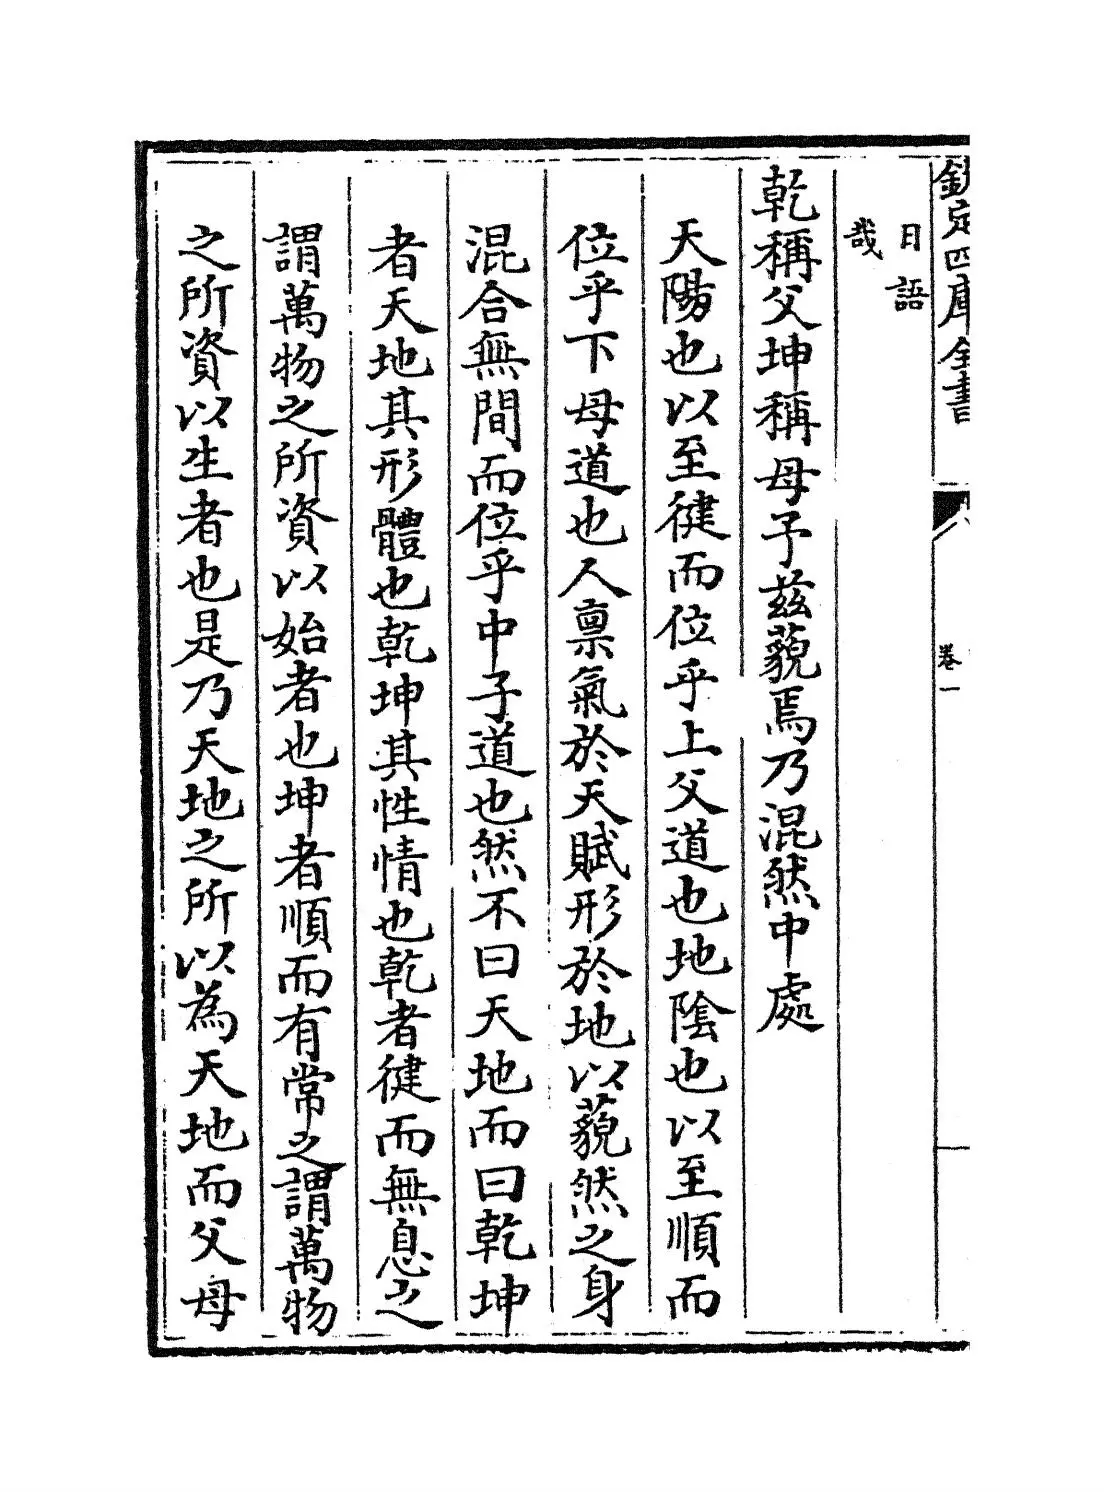 欽定四庫全書
卷一
日語
哉
乾稱父坤稱母予茲藐焉乃混然中處
天陽也以至徤而位乎上父道也地陰也以至順而
位乎下母道也人禀氣於天賦形於地以藐然之身
混合無間而位乎中子道也然不曰天地而曰乾坤
者天地其形體也乾坤其性情也乾者徤而無息之
謂萬物之所資以始者也坤者順而有常之謂萬物
之所資以生者也是乃天地之所以為天地而父母